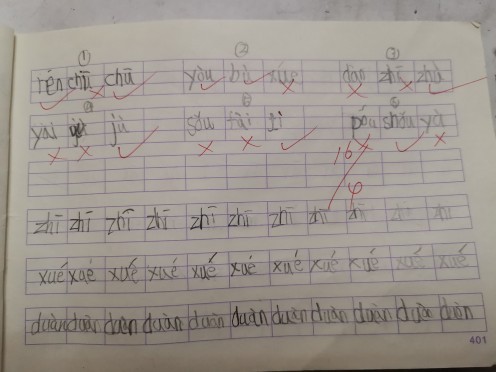 ① ② ③
rén chū chū yòu bù xué dàn zhī zhù
④ ⑤ ⑥
yǎi jù sǒu tài lì póu shǒu yà
16
φ
zhī zhī zhī zhī zhī zhī zhī zhī zhī zhī zhī
xué xué xué xué xué xué xué xué xué xué xué
duàn duàn duàn duàn duàn duàn duàn duàn duàn duàn duàn
401